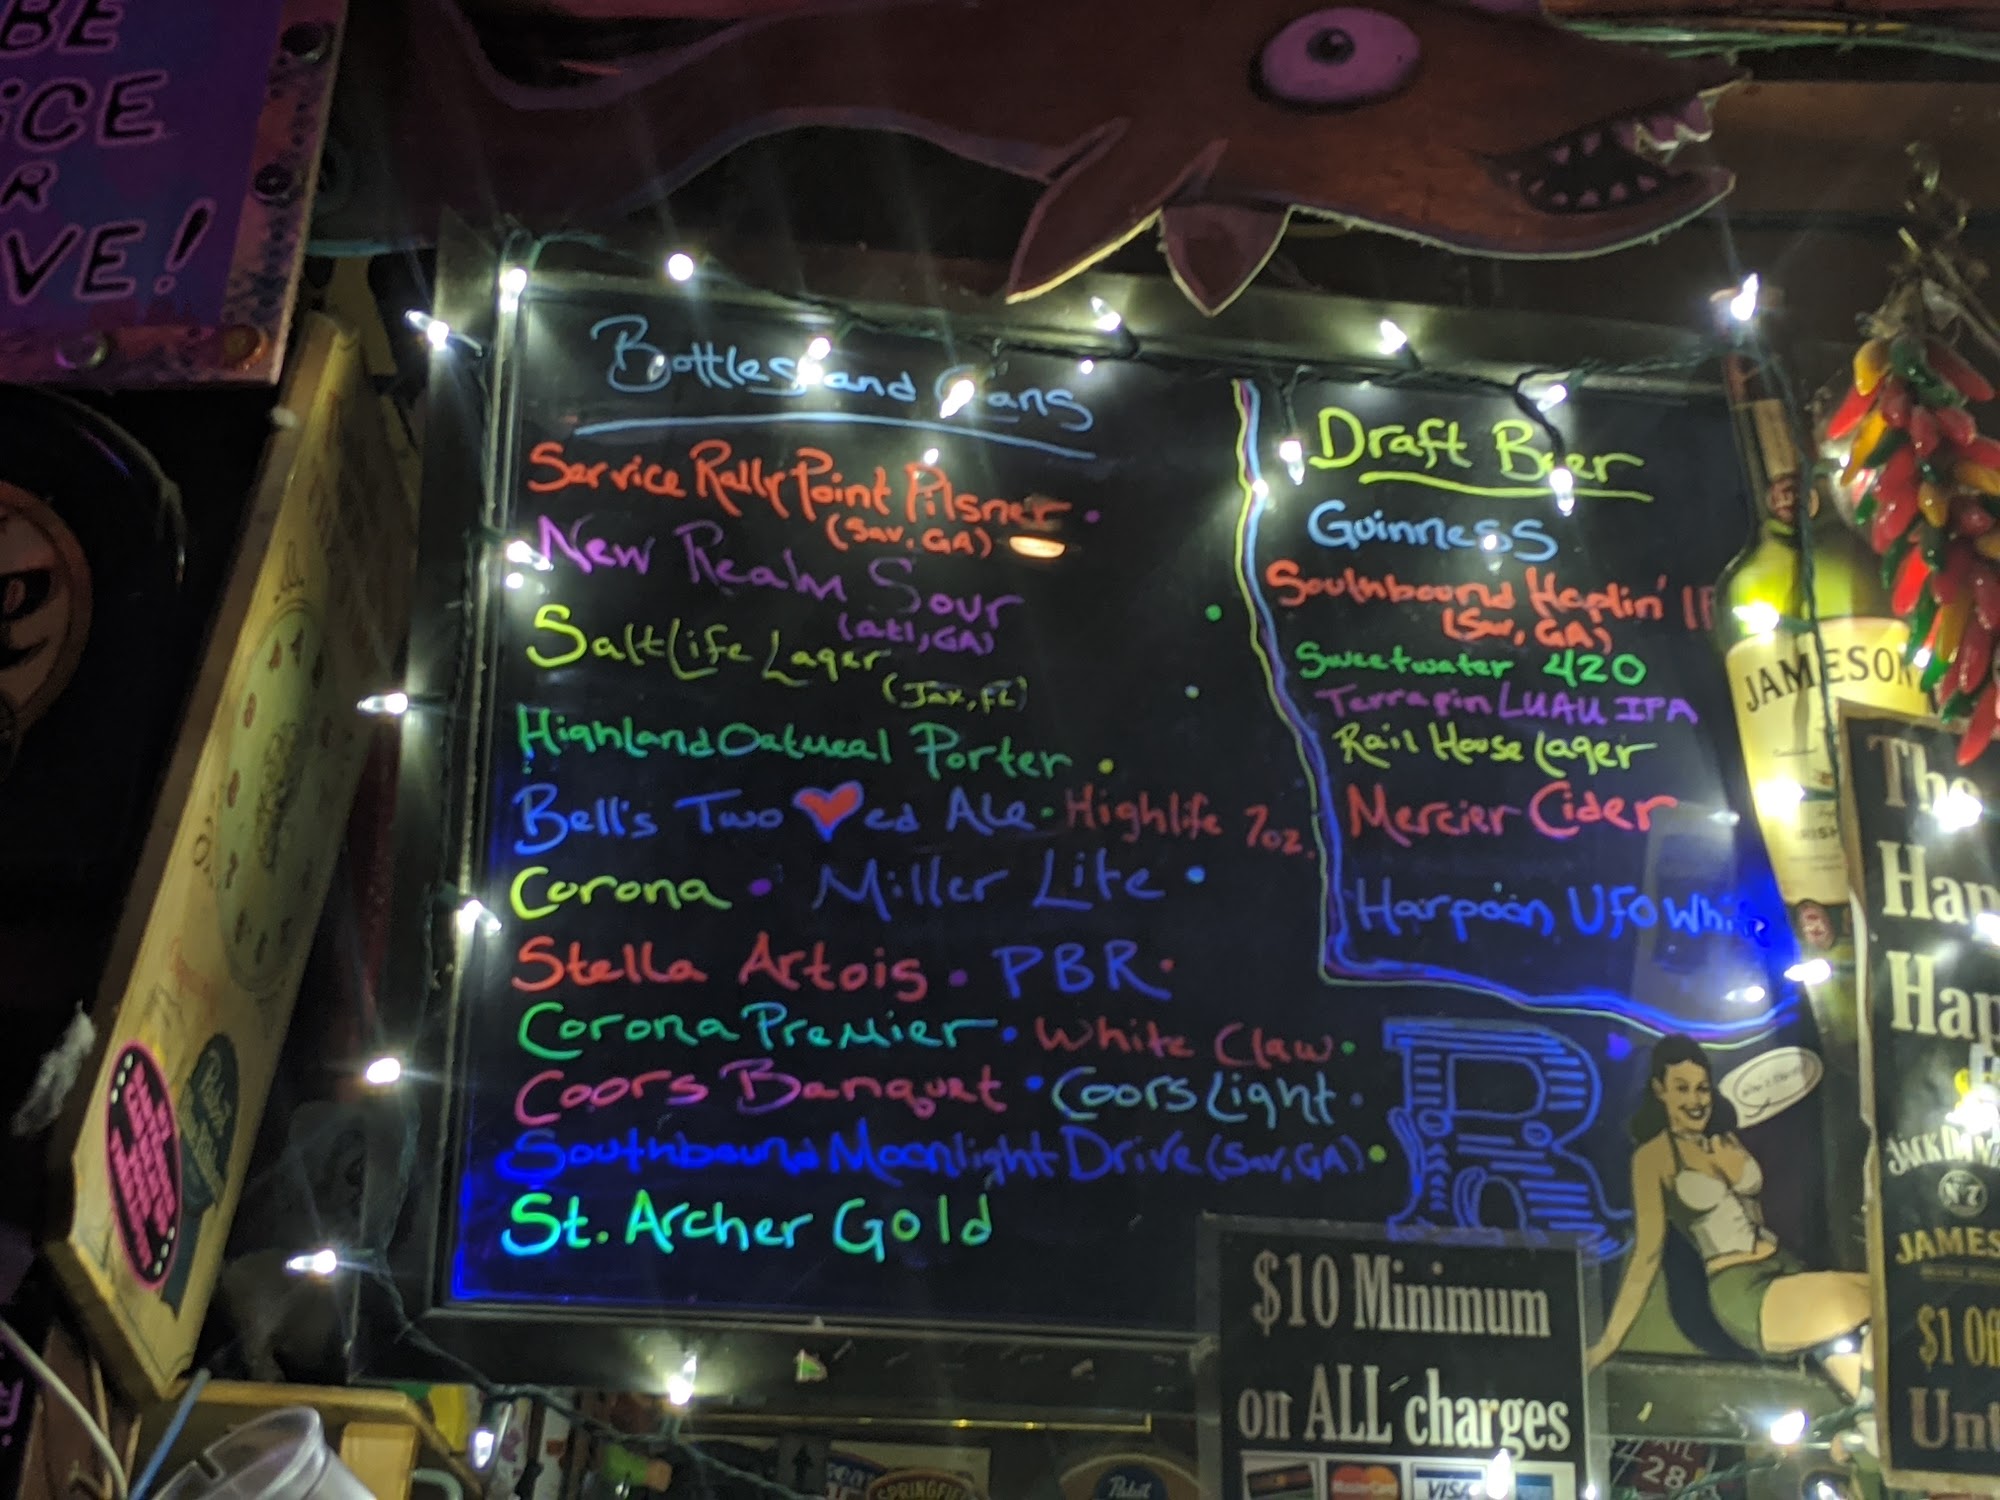 BE
NiCE
OR
LEAVE!
Bottles and Cans
Service Rally Point Pilsner
(Sav, GA)
New Realm Sour
(atl, GA)
Salt Life Lager
(Jax, FL)
Highland Oatmeal Porter
Bell's Two ❤ed Ale Highlife 7oz.
Corona Miller Lite
Stella Artois PBR
Corona Premier White Claw
Coors Banquet Coors Light
Southbound Moonlight Drive (Sav, GA)
St. Archer Gold
Draft Beer
Guinness
Southbound Hoplin' IP
(Sav, GA)
Sweetwater 420
Terrapin LUAU IPA
Rail House Lager
Mercier Cider
Harpoon UFO White
R
JAMESON
The
Hap
Hap
JACK DANI
No 7
JAMES
$1 Off
Unt
$10 Minimum
on ALL charges
MasterCard
VISA
Pabst
SPRINGFI
ATL
28